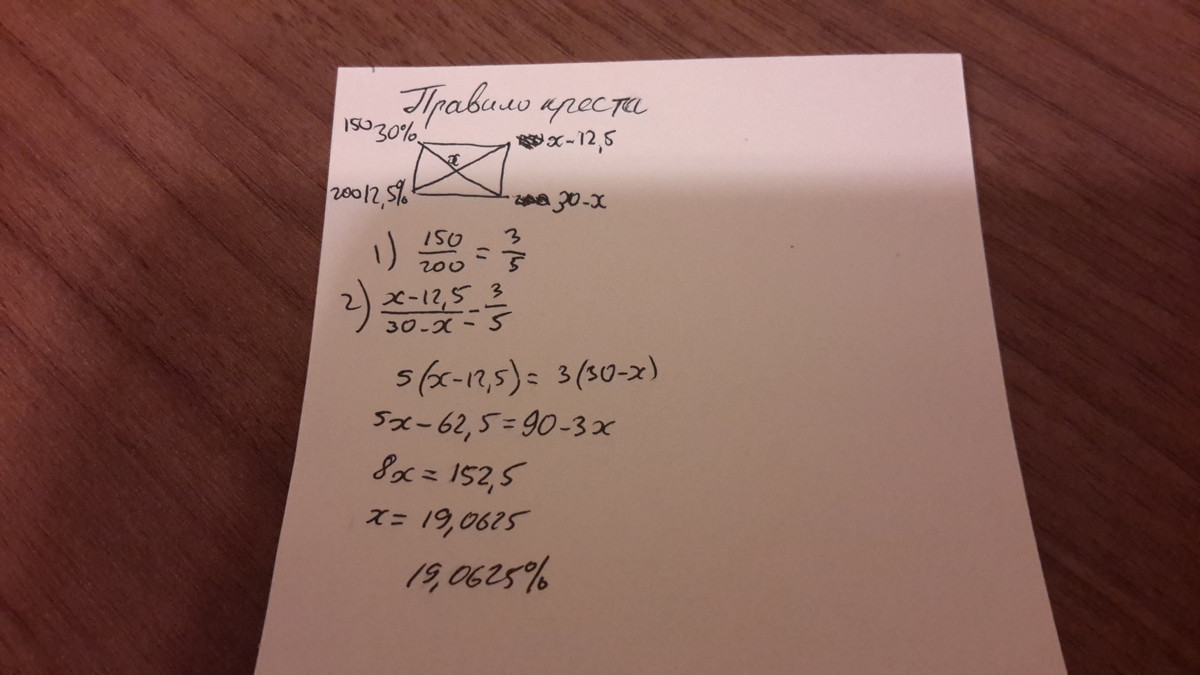 Правило креста
150 30% x-12,5
x
200 12,5% 30-x
1) 150/200 = 3/5
2) x-12,5/30-x = 3/5
5(x-12,5) = 3(30-x)
5x-62,5=90-3x
8x = 152,5
x = 19,0625
19,0625%